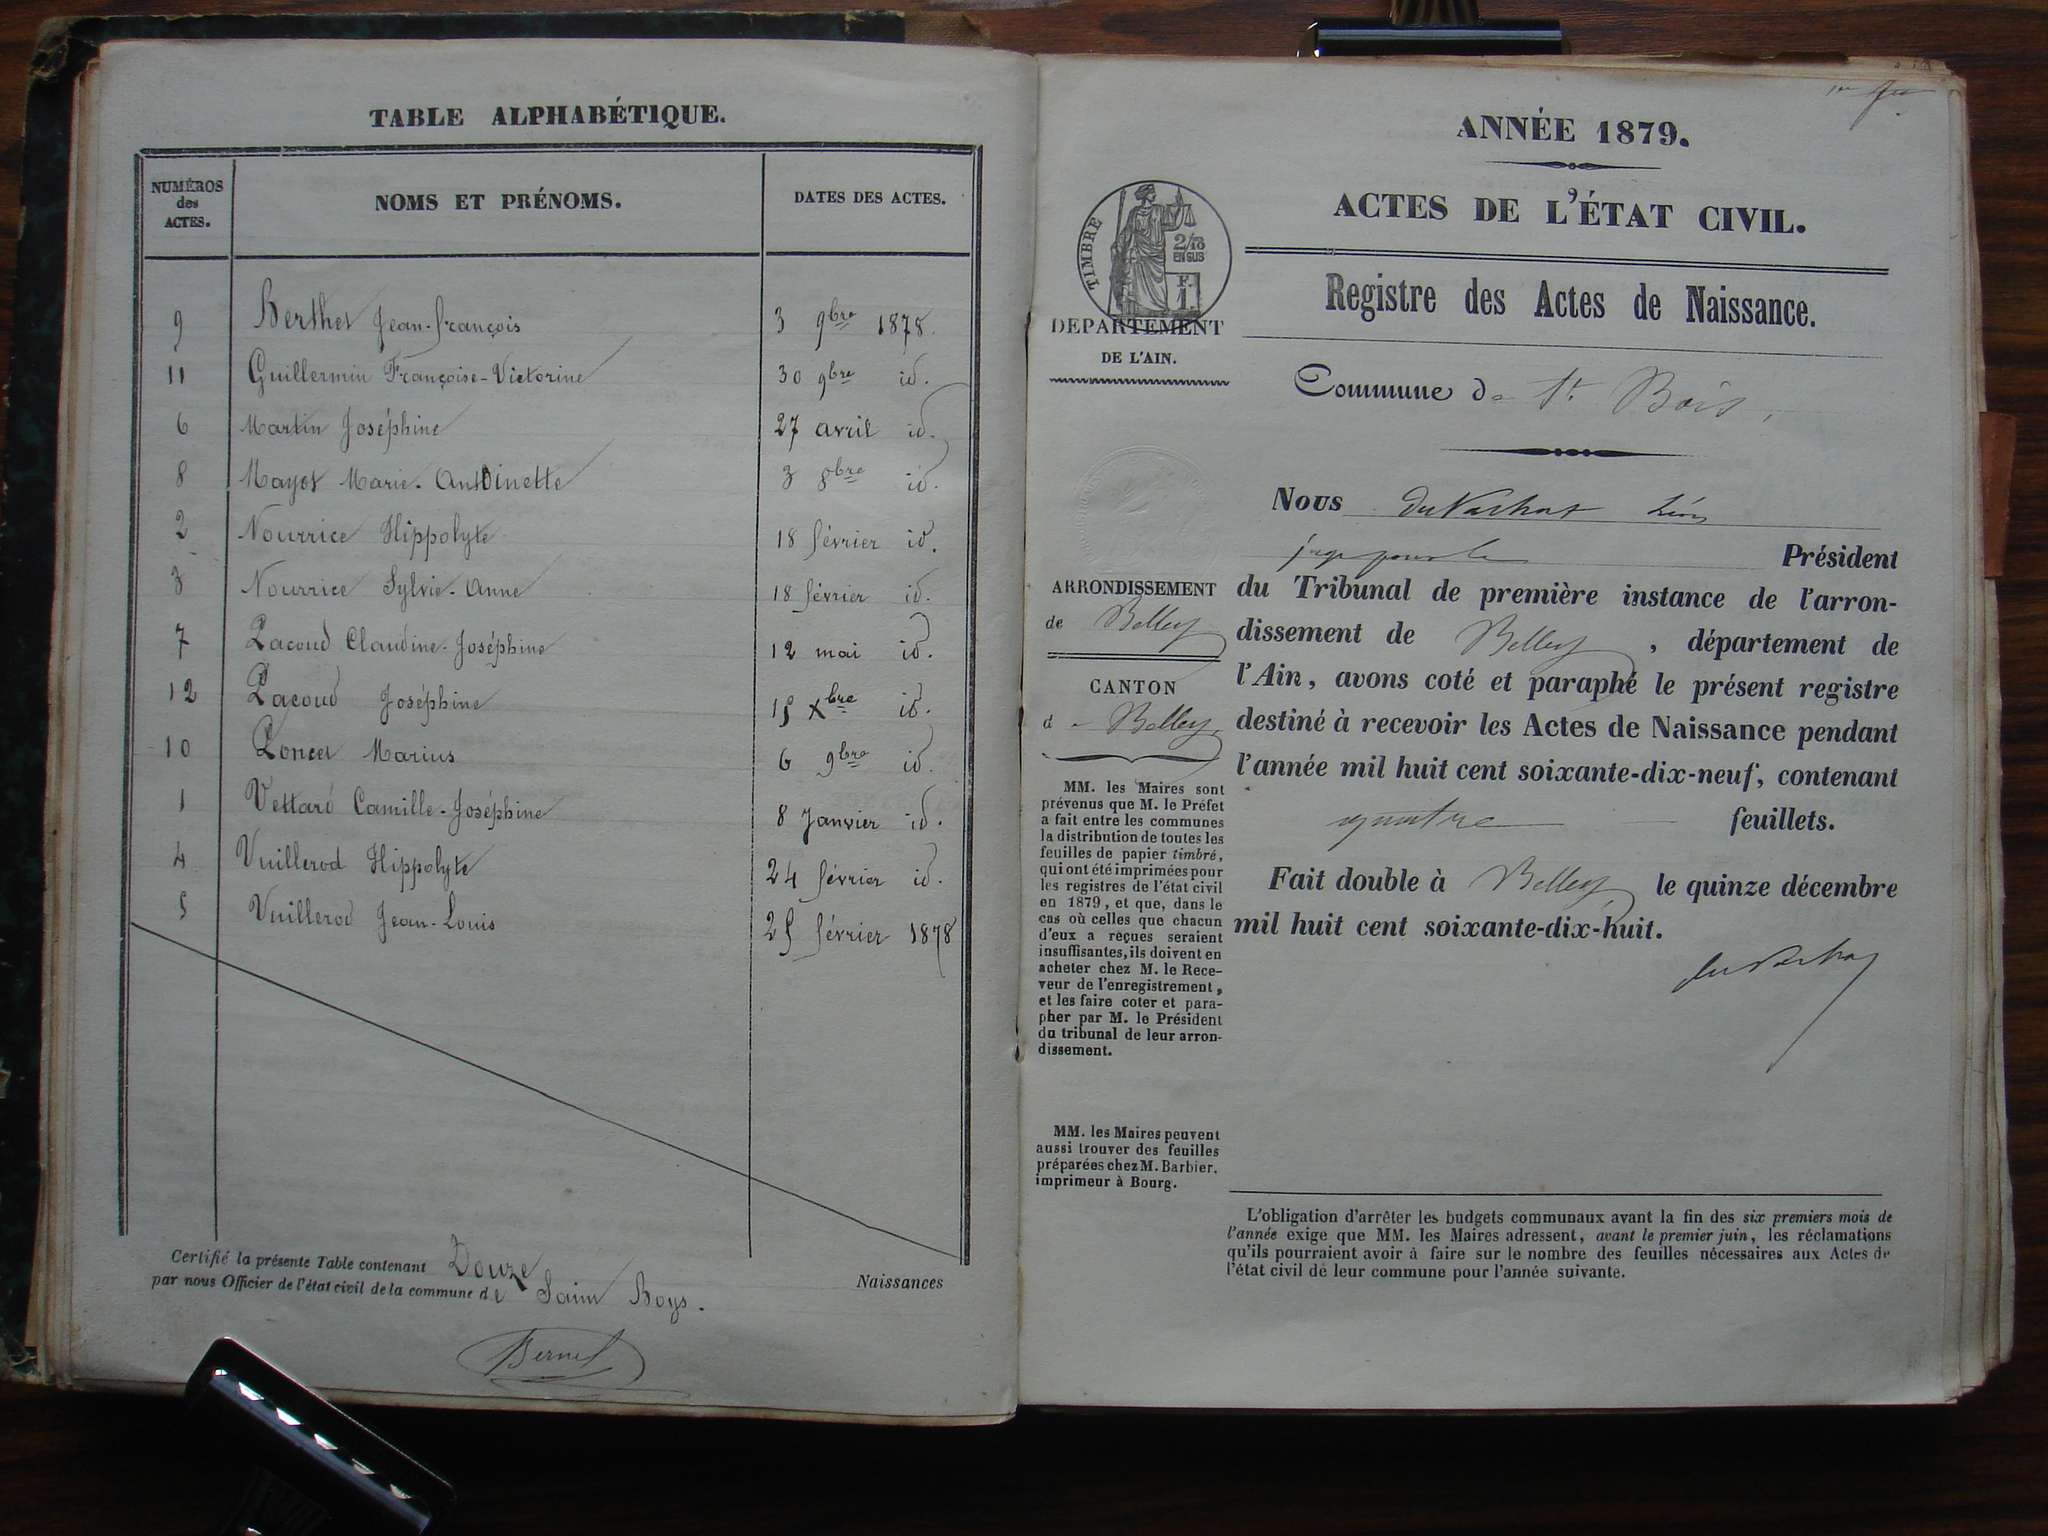 TABLE ALPHABÉTIQUE.
NUMÉROS
des
ACTES.
NOMS ET PRÉNOMS.
DATES DES ACTES.
9 Berthet Jean-François 3 9bre 1878.
11 Guillermin Françoise-Victorine 30 9bre id.
6 Martin Joséphine 27 avril id.
8 Mayet Marie-Antoinette 3 8bre id.
2 Nourrice Hippolyte 18 février id.
3 Nourrice Sylvie-Anne 18 février id.
7 Pacoud Claudine-Joséphine 12 mai id.
12 Pacoud Joséphine 15 Xbre id.
10 Poncet Marius 6 9bre id.
1 Vettard Camille-Joséphine 8 Janvier id.
4 Vuillerod Hippolyte 24 février id.
5 Vuillerod Jean-Louis 25 février 1878
Certifié la présente Table contenant Douze Naissances
par nous Officier de l'état civil de la commune de Saint Boys.
Bernet
ANNÉE 1879.
ACTES DE L'ÉTAT CIVIL.
Registre des Actes de Naissance.
TIMBRE
2/10
EN SUS
F.
1.
DEPARTEMENT
DE L'AIN.
Commune de St Bois,
Nous du Vachat Léon
juge pour le Président
du Tribunal de première instance de l'arron-
dissement de Belley, département de
l'Ain, avons coté et paraphé le présent registre
destiné à recevoir les Actes de Naissance pendant
l'année mil huit cent soixante-dix-neuf, contenant
quatre feuillets.
Fait double à Belley le quinze décembre
mil huit cent soixante-dix-huit.
du Vachat
ARRONDISSEMENT
de Belley
CANTON
de Belley,
MM. les Maires sont
prévenus que M. le Préfet
a fait entre les communes
la distribution de toutes les
feuilles de papier timbré,
qui ont été imprimées pour
les registres de l'état civil
en 1879, et que, dans le
cas où celles que chacun
d'eux a reçues seraient
insuffisantes, ils doivent en
acheter chez M. le Rece-
veur de l'enregistrement,
et les faire coter et para-
pher par M. le Président
du tribunal de leur arron-
dissement.
MM. les Maires peuvent
aussi trouver des feuilles
préparées chez M. Barbier,
imprimeur à Bourg.
L'obligation d'arrêter les budgets communaux avant la fin des six premiers mois de
l'année exige que MM. les Maires adressent, avant le premier juin, les réclamations
qu'ils pourraient avoir à faire sur le nombre des feuilles nécessaires aux Actes de
l'état civil de leur commune pour l'année suivante.